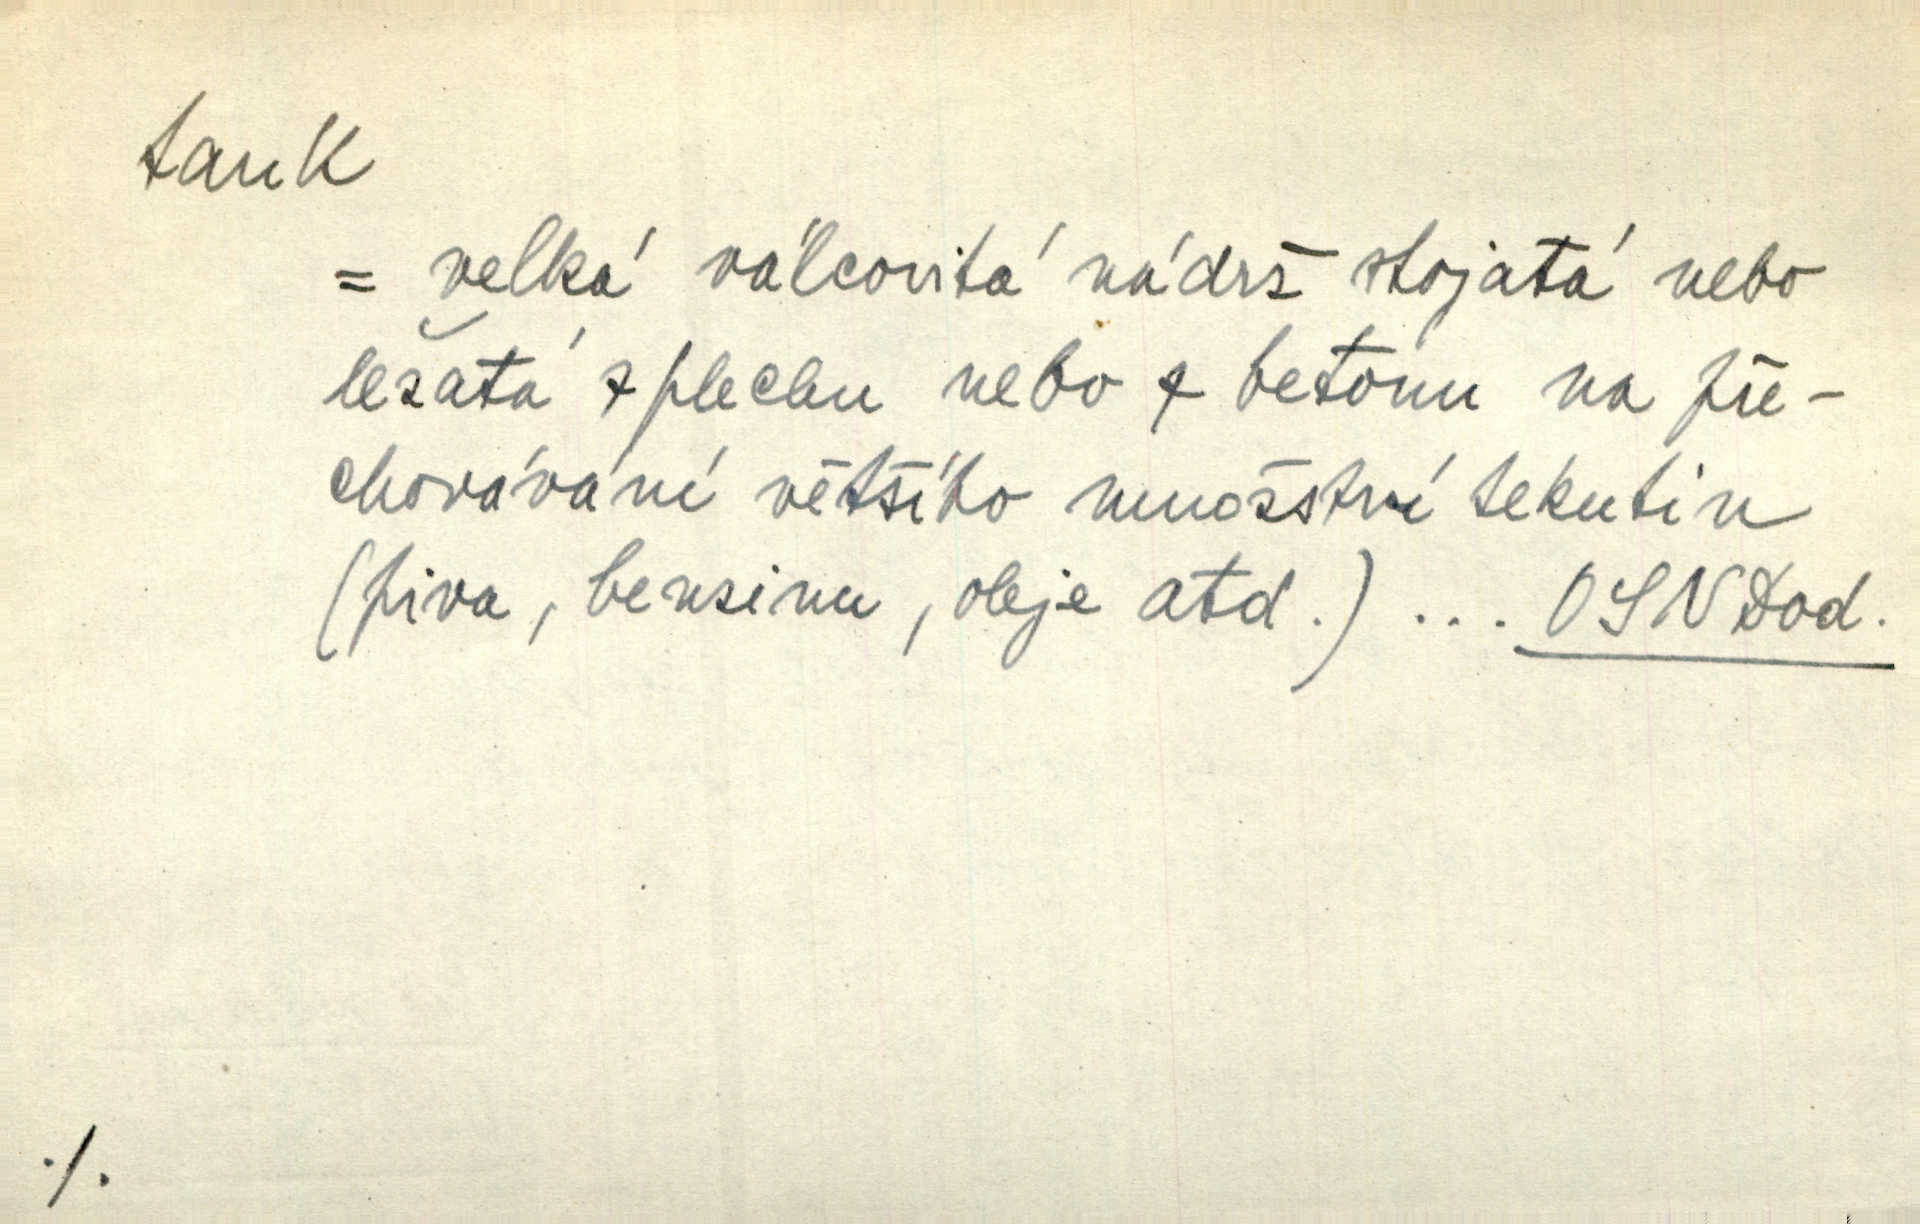 tank
= velká válcovitá nádrž stojatá nebo
ležatá z plechu nebo z betonu na pře-
chovávání většího množství tekutin
(piva, bensinu, oleje atd.) ... OSN Dod.
./.